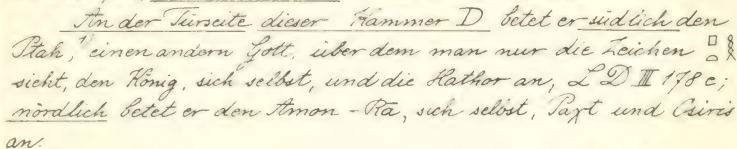 An der Türseite dieser Kammer D betet er südlich den
Ptah, einen andern Gott, über dem man nur die Zeichen 𓊪𓏏𓎛
sieht, den König, sich selbst, und die Hathor an, L D III 178 c;
nördlich betet er den Amon-Ra, sich selbst, Paχt und Osiris
an.